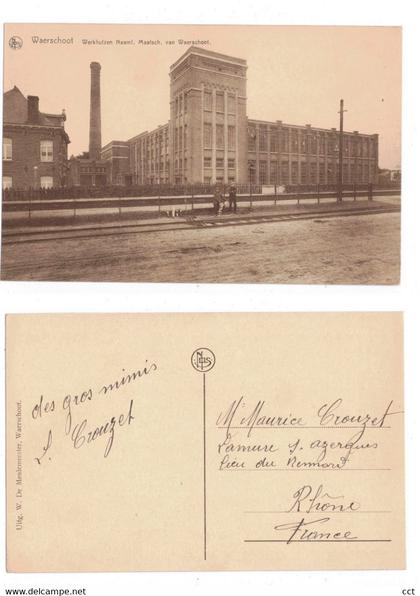 Waerschoot Werkhuizen Naaml. Maatsch. van Waerschoot.
des gros mimis
L. Crouzet
Uitg. W. De Meulemeester, Waerschoot.
Mr Maurice Crouzet
Lamure s. azergues
lieu du
Rhône
France
pcct